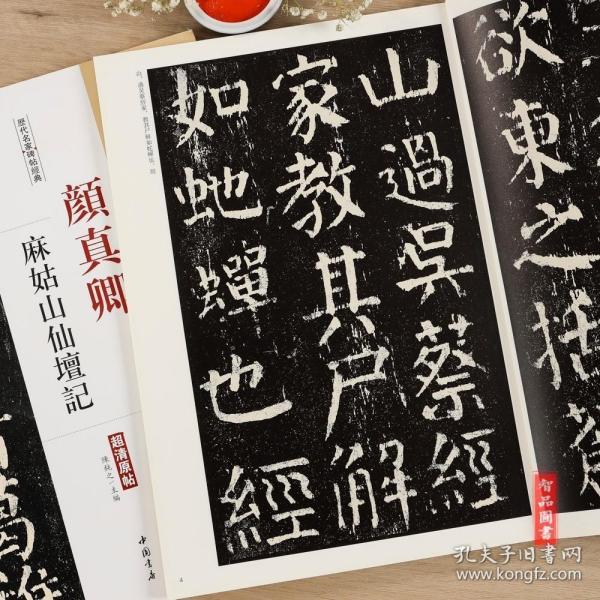 歷代名家碑帖經典
顔真卿
麻姑山仙壇記
超清原帖
陳純之 主編
中国書店
欲東之括蒼
山過吳蔡經
家教其尸解
如虵蟬也經
4
智品圖書
孔夫子旧书网
www.kongfz.com